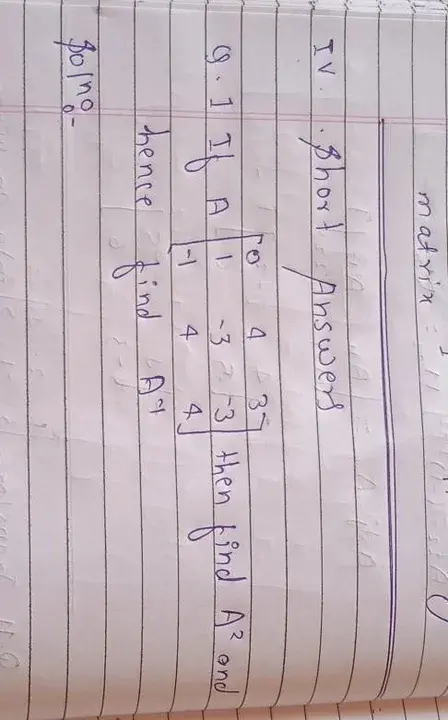 matrix =
IV. Short Answers
Q.1 If A [0 4 3
1 -3 -3
-1 4 4] then find A² and
hence find A⁻¹
Solno:-